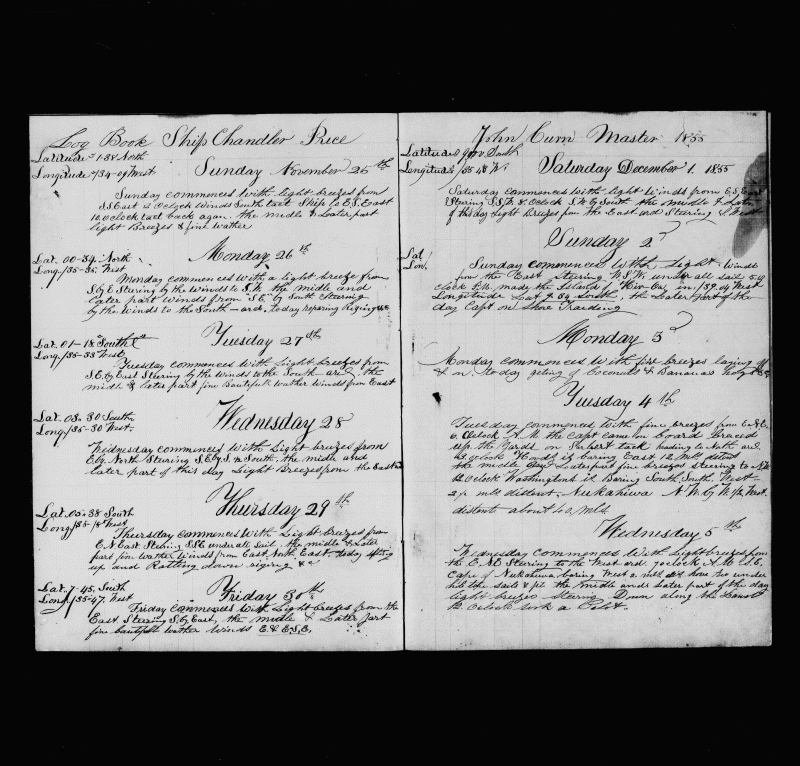 Log Book Ship Chandler Price
Latitude 1-38 North
Longitude 134-09 West
Sunday November 25th
Sunday commences with light breezes from
S.S.East 12 oclock winds South tact Ship to E.S.East
10 oclock tact back agan. the midle & Later part
light Breezes & fine wather
Lat. 00-34. North
Long. 135-35. West
Monday 26th
Monday commences with a light breeze from
S.by E Stering by the winds to S.W. the midle and
Later part winds from S.E. by South Stering
by the Winds to the South today reparing Riging &c
Lat. 01-18 South
Long. 135-33 West
Tuisday 27th
Tuisday commences with Light breezes from
S.E. by East Stering by the winds to the South and the
midle & later part fine Bautifull wather winds from East
Lat. 03-30 South
Long. 135-30 West.
Wednesday 28
Wednesday commences with Light breezes from
E.by. North Stering S.E.by.S. & South. the midle and
Later part of this day Light Breezes from the Eastard
Lat. 05-38 South
Long. 135 West
Thursday 29th
Thursday commences With Light breezes from
E.N.East Stering S.S.E under all Sail the midle & Later
part fin wather Winds from East North East today
up and Ratling down riging &c
Lat. 7-45. South
Long. 135-47. West
Friday 30th
Friday commences with Light breezes from the
East Stering S.by East, the midle & Later part
fine bautifull wather winds E & E.S.E.
John Curn Master 1855
Latitude South
Longitude 135 48 W.
Saturday December 1. 1855
Saturday commences with light Winds from E.S.East
Stering S.S.W. 8. Oclock S.W. by South the midle & Later
of this day light Breezes from the Eastard Stering S.West
Lat
Lon.
Sunday 2d
Sunday commences with Light winds
from the East Stering W.S.W. under all sail 5
clock P.M. made the Island of in 139.04 West
Longitude Lat 9.54 South, the Later Part of the
day Capt on Shore Traiding
Monday 3d
Monday commences with fine breezes laying off
& on. today geting of Coconuts & Bananas
Tuisday 4th
Tuisday commences with fine breezes from E.N.E.
Oclock A.M. the Capt came on board Braced
up the Yards on Starbert tack heading to North and
12 oclock Hood is baring East 12 mls distent
the midle and Laterpart fine breezes stering to N.W.
12 Oclock Washington is Baring South South. West
mls distent, Nukahiwa N.W. by W 1/2 West.
distents about 40 Mls
Wednesday 5th
Wednesday commences With Light breezes from
the E.N.E Stering to the West and 7 oclock A.M. S.E.
Cape of Nukahiwa baring West 2. mls dist
light breezes Stering Down along the Land
12 Oclock took a Pilot.